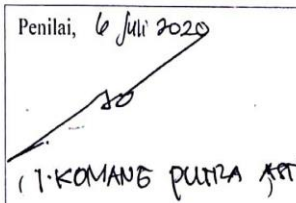 Penilai, 6 Juli 2020
(I. KOMANG PUTRA AST
)